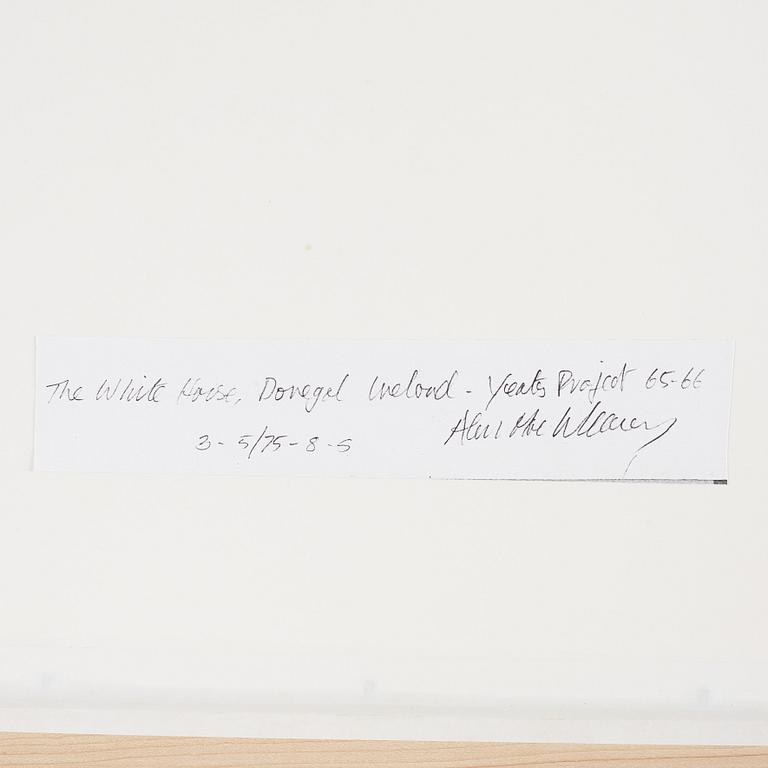 The White House, Donegal Ireland - Yeats Project 65-66
3 - 5/75 - 8 - S
Alen MacWeeney